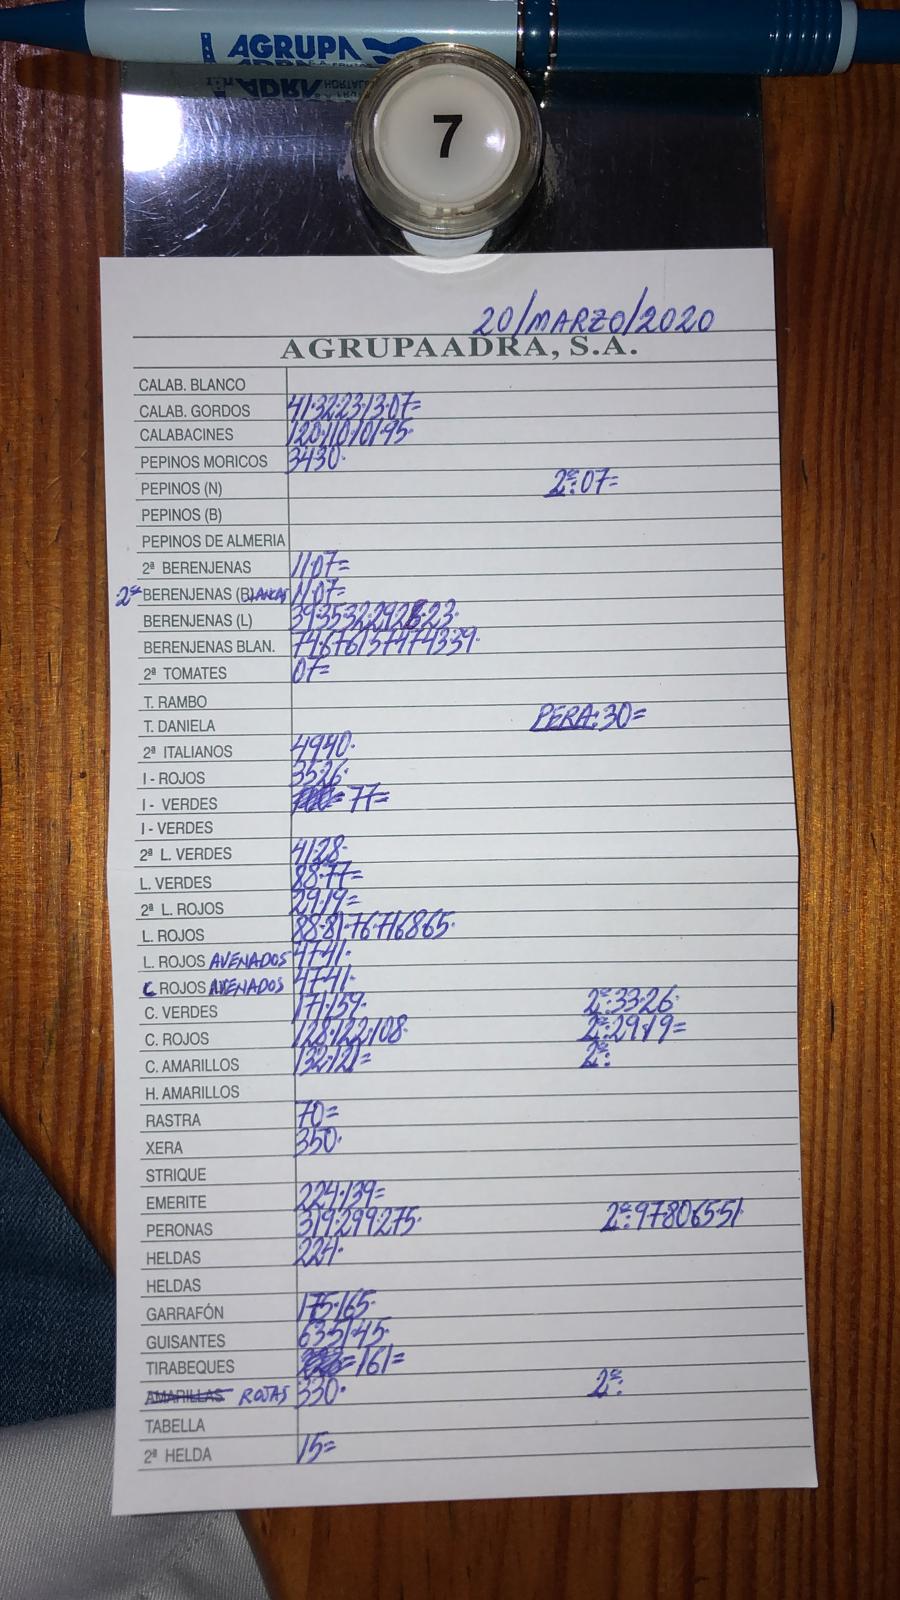 AGRUPA
ADRA
7
20/MARZO/2020
AGRUPAADRA, S.A.
CALAB. BLANCO
CALAB. GORDOS 41·32·23·13·07=
CALABACINES 120·110·101·95·
PEPINOS MORICOS 3430·
PEPINOS (N) 2ª: 07=
PEPINOS (B)
PEPINOS DE ALMERIA
2ª BERENJENAS 11·07=
2ª BERENJENAS (BLANCAS 11·07=
BERENJENAS (L)
BERENJENAS BLAN.
2ª TOMATES 07=
T. RAMBO
T. DANIELA PERA: 30=
2ª ITALIANOS 4940·
I - ROJOS 35·26·
I - VERDES 77=
I - VERDES
2ª L. VERDES 41·28·
L. VERDES 88·77=
2ª L. ROJOS 29·19=
L. ROJOS 88·81·76·716865·
L. ROJOS AVENADOS 4741·
C ROJOS AVENADOS 4741·
C. VERDES 171·159· 2ª: 33·26·
C. ROJOS 128·122·108· 2ª: 29·19=
C. AMARILLOS 132·121= 2ª:
H. AMARILLOS
RASTRA 70=
XERA 350·
STRIQUE
EMERITE 224·139=
PERONAS 319·299·275· 2ª: 97·806551·
HELDAS 224·
HELDAS
GARRAFÓN 175·165·
GUISANTES 635145·
TIRABEQUES 161=
AMARILLAS ROJAS 330· 2ª:
TABELLA
2ª HELDA 15=